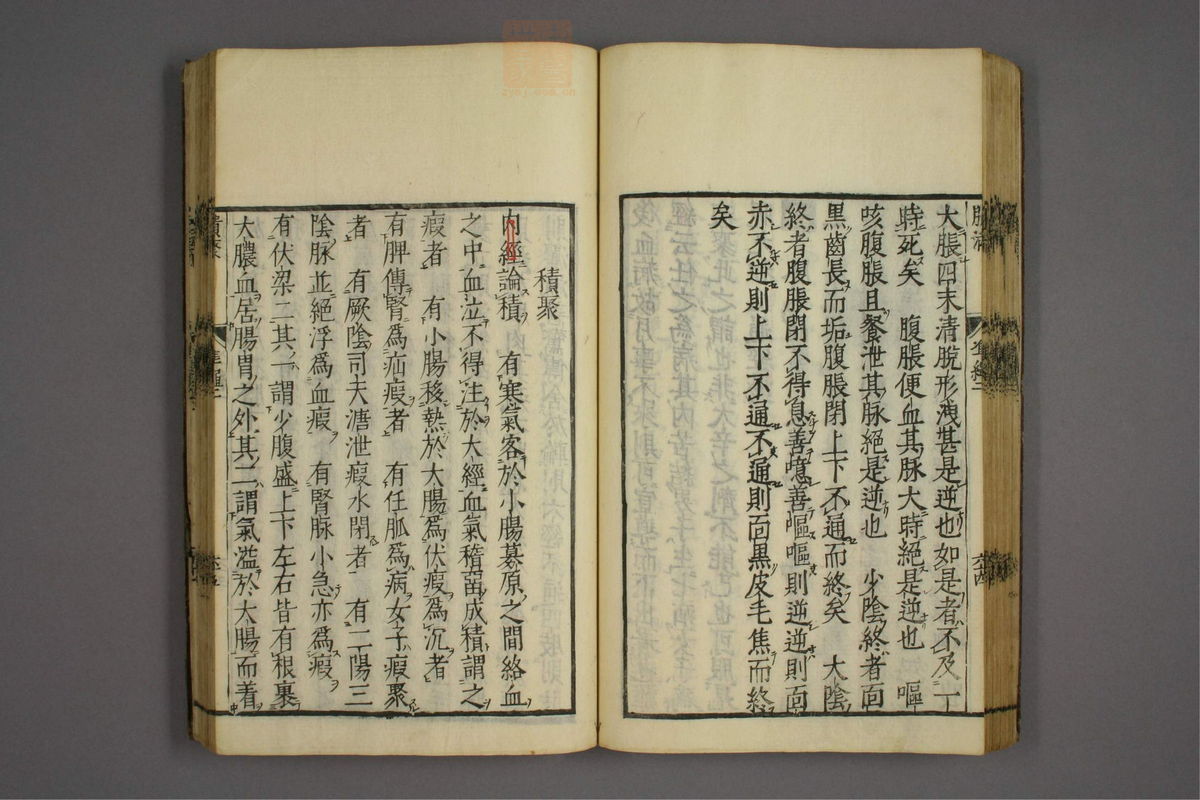 大脹四末清脫形洩甚是逆也如是者不及一丁
時死矣　腹脹便血其脉大時絕是逆也　嘔
咳腹脹且飧泄其脉絕是逆也　少陰終者面
黑齒長而垢腹脹閉上下不通而終矣　大陰
終者腹脹閉不得息善噫善嘔嘔則逆逆則面
赤不逆則上下不通不通則面黑皮毛焦而終
矣
積聚
內經論積　有寒氣客於小腸募原之間絡血
之中血泣不得注於大經血氣稽留成積謂之
瘕者　有小腸移熱於大腸爲伏瘕爲沉者
有脾傳腎爲疝瘕者　有任脉爲病女子瘕聚
者　有厥陰司天溏泄瘕水閉者　有二陽三
陰脉並絕浮爲血瘕　有腎脉小急亦爲瘕
有伏梁二其一謂少腹盛上下左右皆有根裹
大膿血居腸胃之外其二謂氣溢於大腸而着
積聚